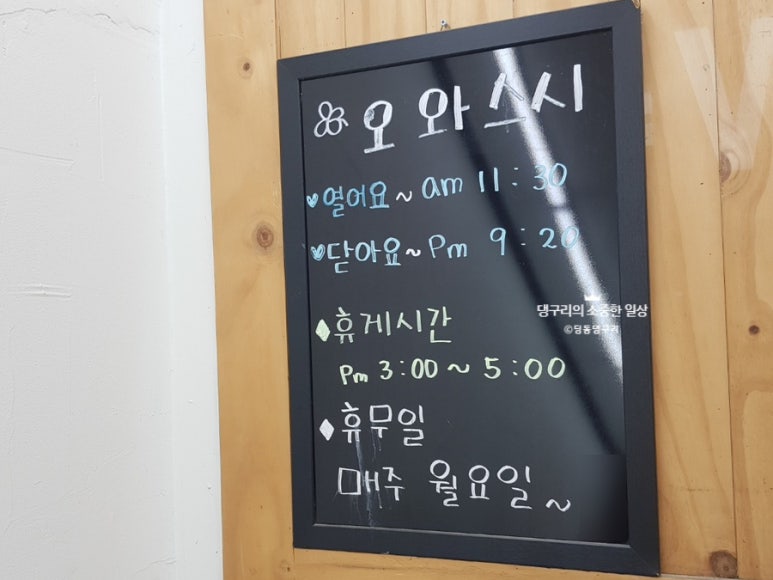 오 와 스시
열어요~ am 11:30
닫아요~ Pm 9:20
휴게시간
Pm 3:00 ~ 5:00
휴무일
매주 월요일~
댕구리의 소중한 일상